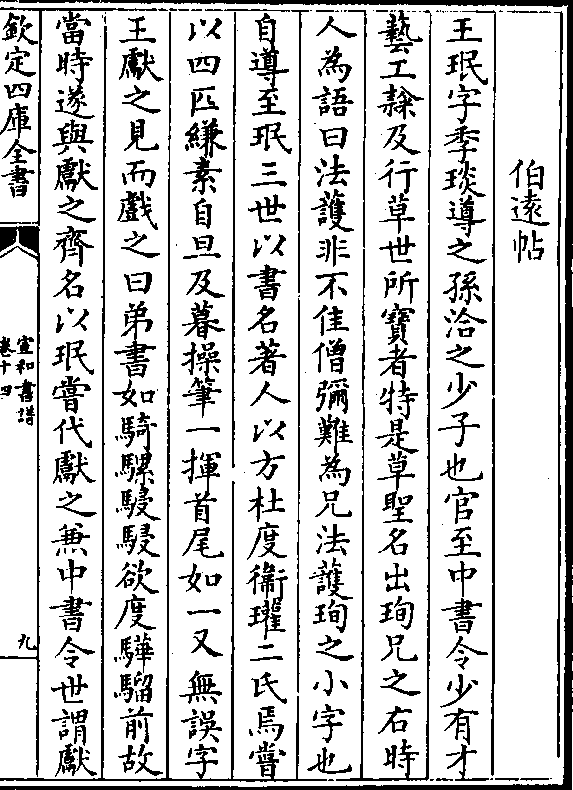 伯遠帖
王珉字季琰導之孫洽之少子也官至中書令少有才
藝工隸及行草世所寶者特是草聖名出珣兄之右時
人為語曰法護非不佳僧彌難為兄法護珣之小字也
自導至珉三世以書名著人以方杜度衞瓘二氏焉嘗
以四匹縑素自旦及暮操筆一揮首尾如一又無誤字
王獻之見而戲之曰弟書如騎騾駸駸欲度驊騮前故
當時遂與獻之齊名以珉嘗代獻之兼中書令世謂獻
欽定四庫全書
宣和書譜
卷十四
九